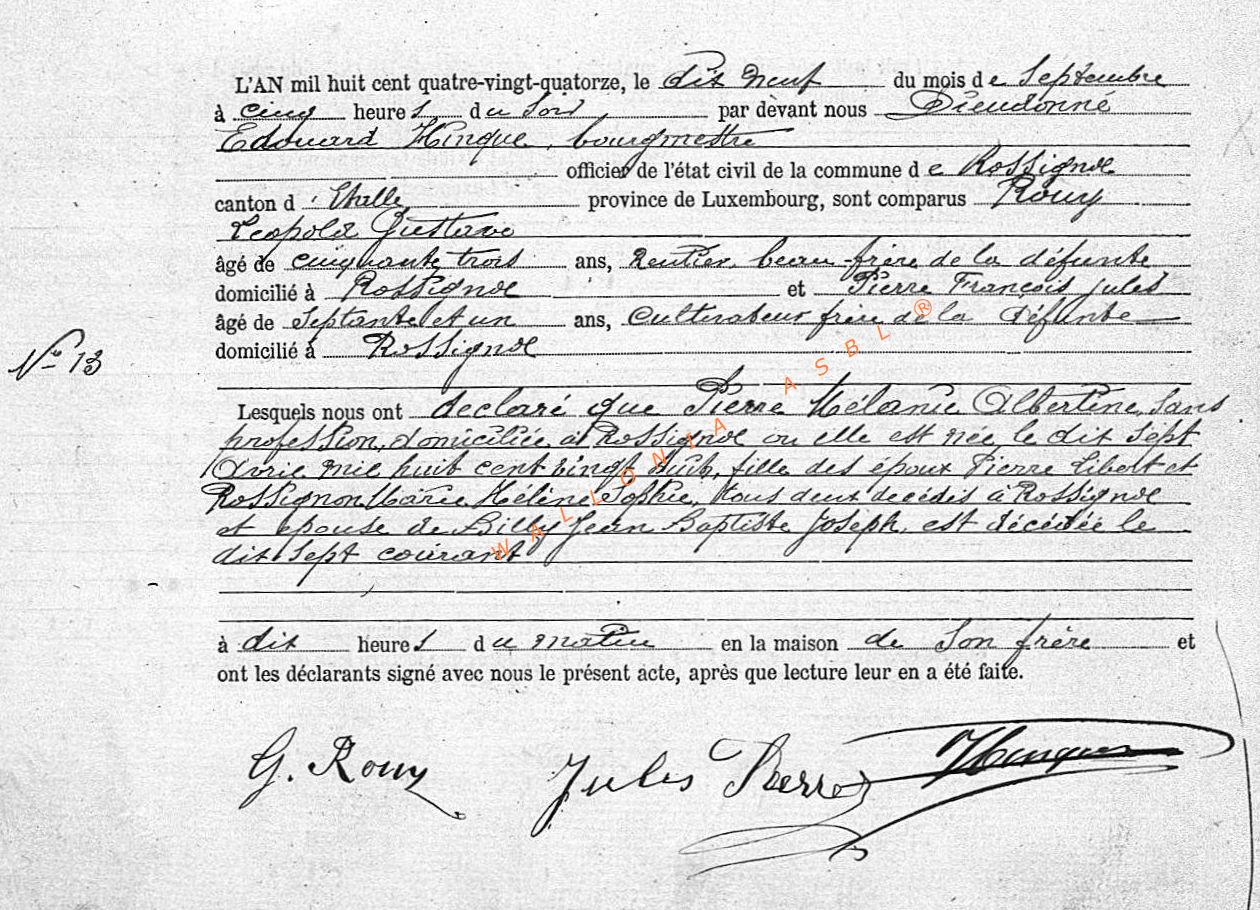 L'AN mil huit cent quatre-vingt-quatorze, le dix neuf du mois de Septembre
à cinq heures du Soir par devant nous Dieudonné
Edouard Hinque, bourgmestre
officier de l'état civil de la commune de Rossignol
canton d'Etalle province de Luxembourg, sont comparus Rouy
Léopold Gustave
âgé de cinquante trois ans, Rentier, beau-frère de la défunte
domicilié à Rossignol et Pierre François Jules
âgé de Septante et un ans, Cultivateur frère de la défunte
domicilié à Rossignol
N° 13
Lesquels nous ont declaré que Pierre Mélanie Albertine, Sans
profession, domiciliée à Rossignol ou elle est née, le dix sept
Avril mil huit cent vingt huit, fille des époux Pierre Libert et
Rossignon Marie Hélène Sophie, tous deux décédés à Rossignol
et épouse de Billy Jean Baptiste Joseph, est décédée le
dix sept courant
à dix heures du matin en la maison de Son frère et
ont les déclarants signé avec nous le présent acte, après que lecture leur en a été faite.
G. Rouy Jules Pierre Hinque
WALLONIA ASBL ®